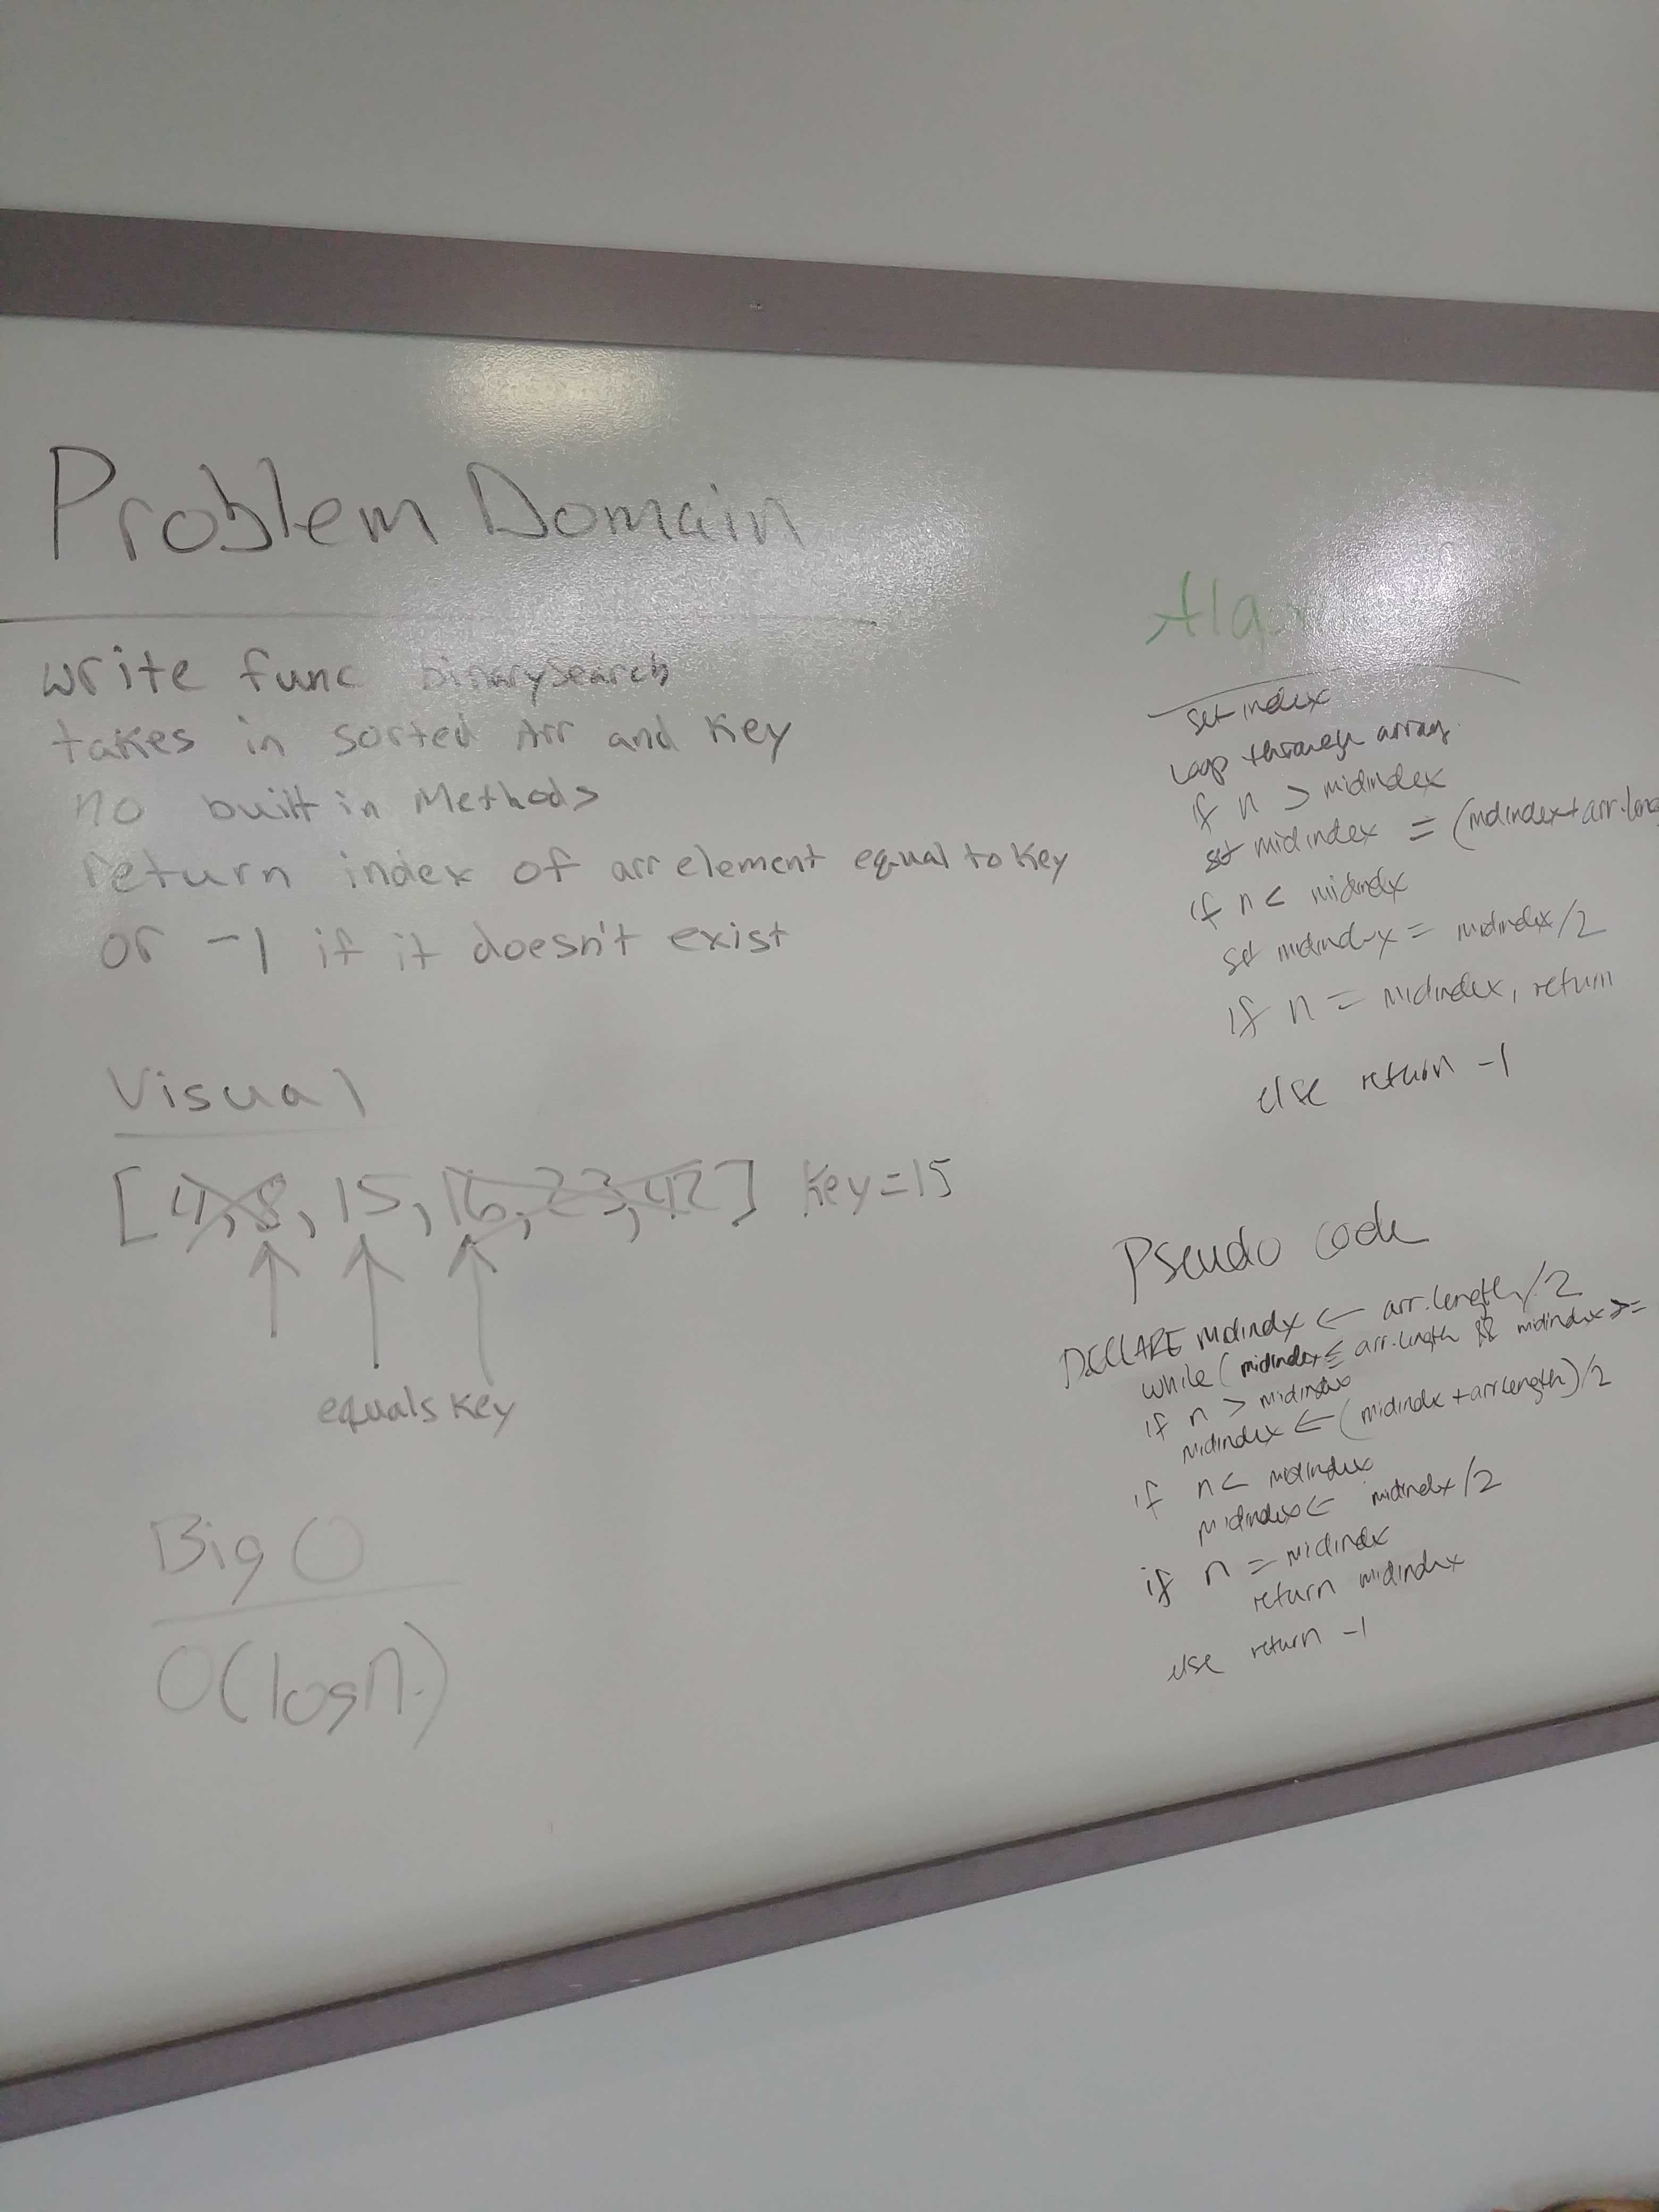 Problem Domain
write func binarysearch
takes in sorted Arr and Key
no built in Methods
return index of arr element equal to Key
or -1 if it doesn't exist
Visual
[4,8, 15, 16, 23, 42] Key=15
equals Key
Big O
O(log n)
set index
loop through array
if n > midindex
set midindex = (midindex+arr.leng
if n < midindex
set midindex = midindex/2
if n = midindex, return
else return -1
Pseudo code
DECLARE midindx ← arr.length/2
while (midindex ≤ arr.length && midindex >=
if n > midindex
midindex ← (midindx + arr.length)/2
if n < midindex
midindex ← midindx/2
if n = midindex
return midindex
else return -1